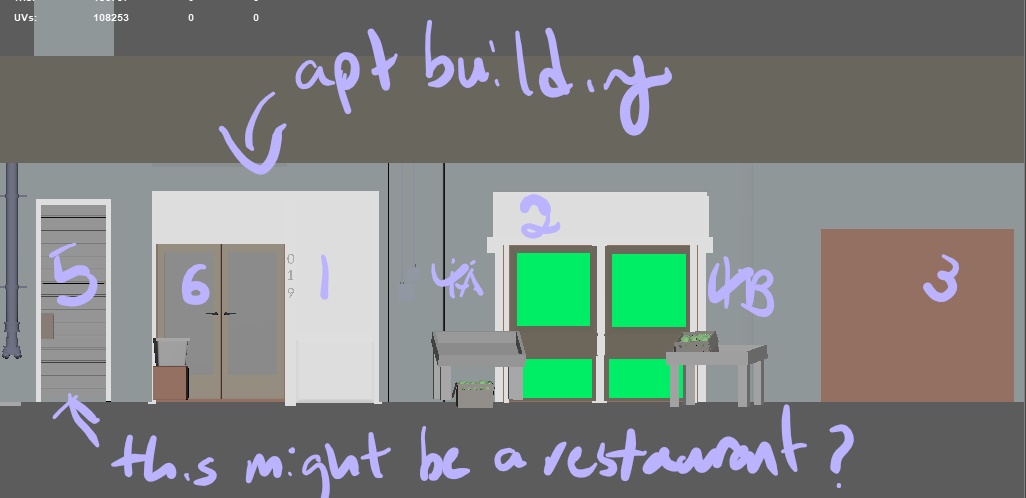 UVs: 108253 0 0
apt building
2
5
6
0
1
9
1
4A
4B
3
this might be a restaurant?